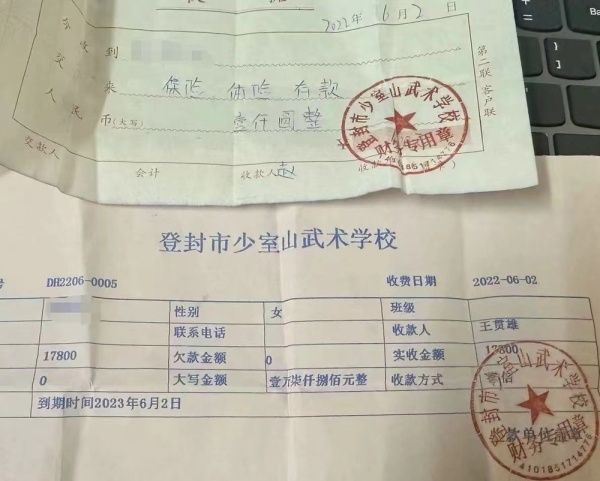 2022年 6月2日
会收到
交来 保险 体险 存款
人民币(大写) 壹仟圆整
第二联 客户联
登封市少室山武术学校
财务专用章
交款人 会计 收款人 赵
登封市少室山武术学校
号 DH2206-0005 收费日期 2022-06-02
性别 女 班级
联系电话 收款人 王贯雄
17800 欠款金额 0 实收金额 17800
0 大写金额 壹万柒仟捌佰元整 收款方式
到期时间2023年6月2日
登封市少室山武术学校
财务专用章
4101851714776